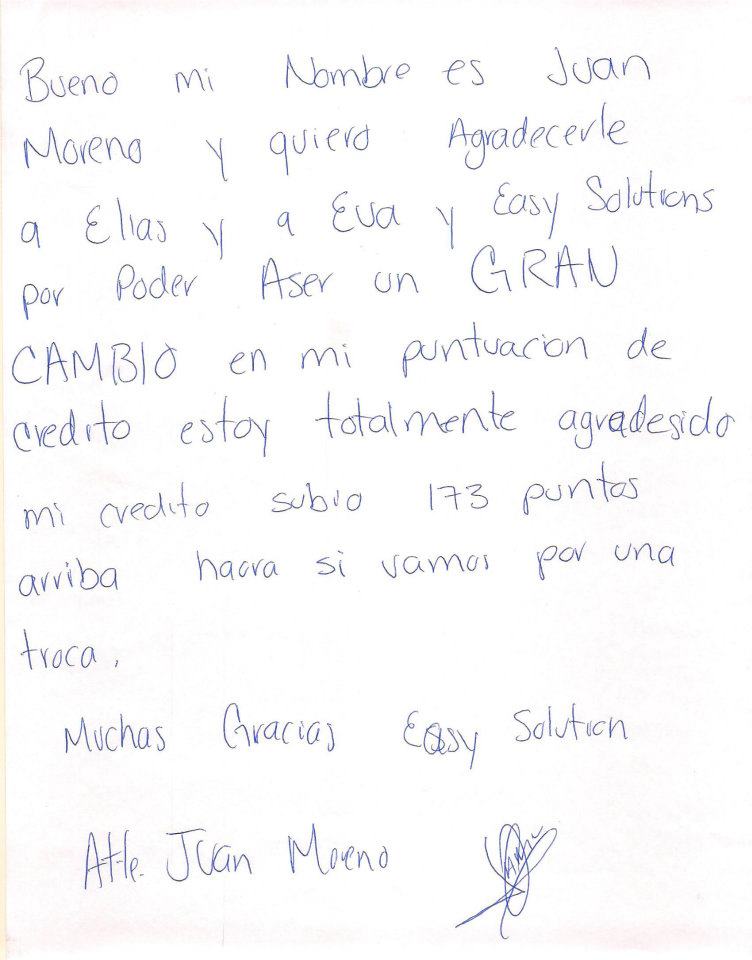 Bueno mi Nombre es Juan
Moreno y quiero Agradecerle
a Elias y a Eva y Easy Solutions
por Poder Aser un GRAN
CAMBIO en mi puntuacion de
credito estoy totalmente agradesido
mi credito subio 173 puntos
arriba haora si vamos por una
troca.
Muchas Gracias Easy Solution
Atte. Juan Moreno